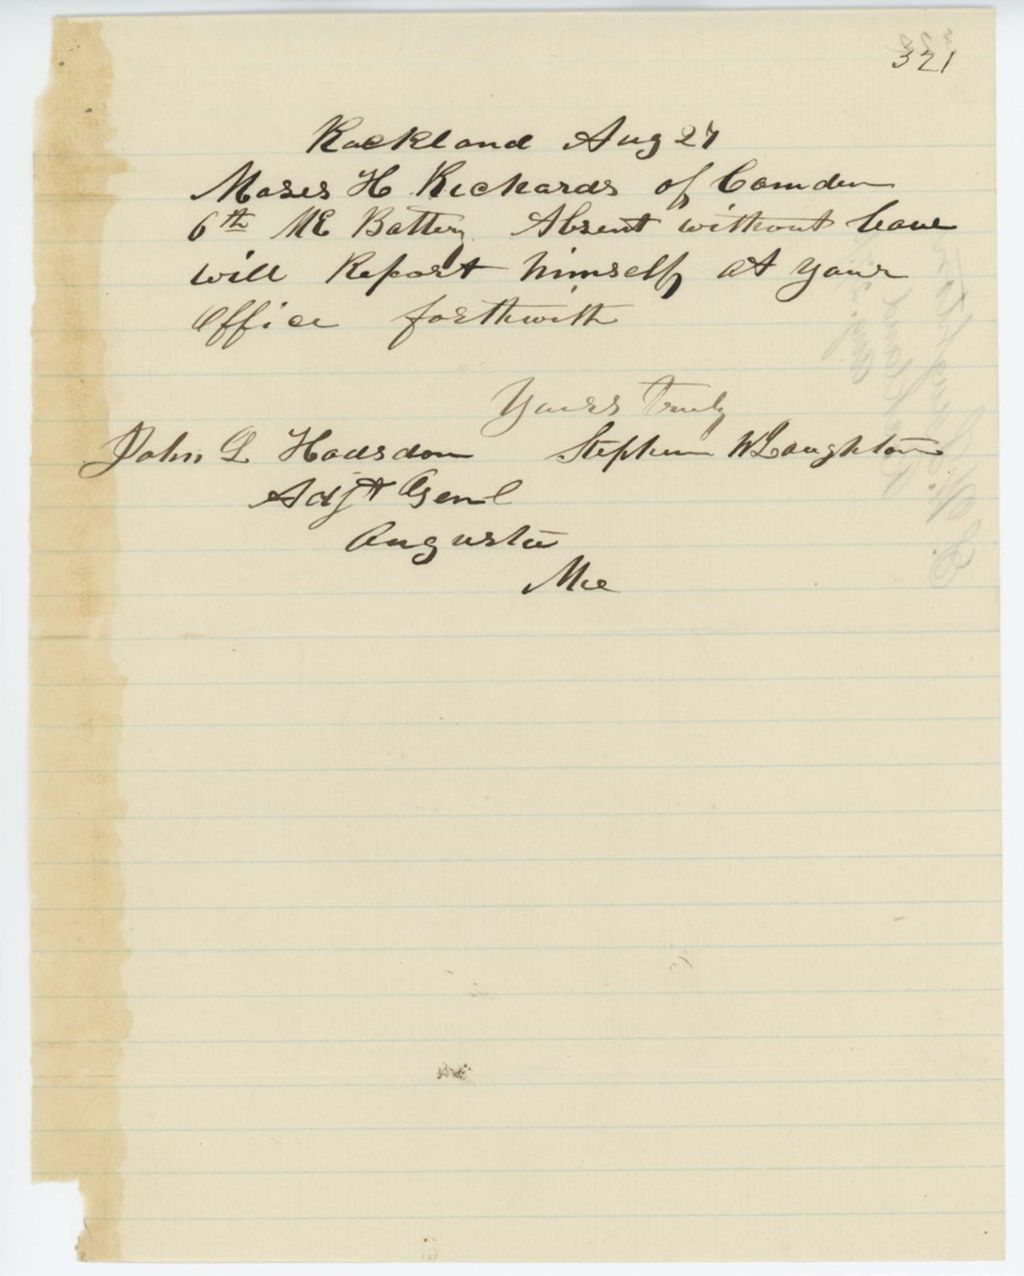 321
Rockland Aug 27
Moses H Richards of Camden
6th ME Battery Absent without leave
will Report himself at your
Office forthwith
Yours Truly
John L Hodsdon Stephen W Laughton
Adjt Genl
Augusta
Me